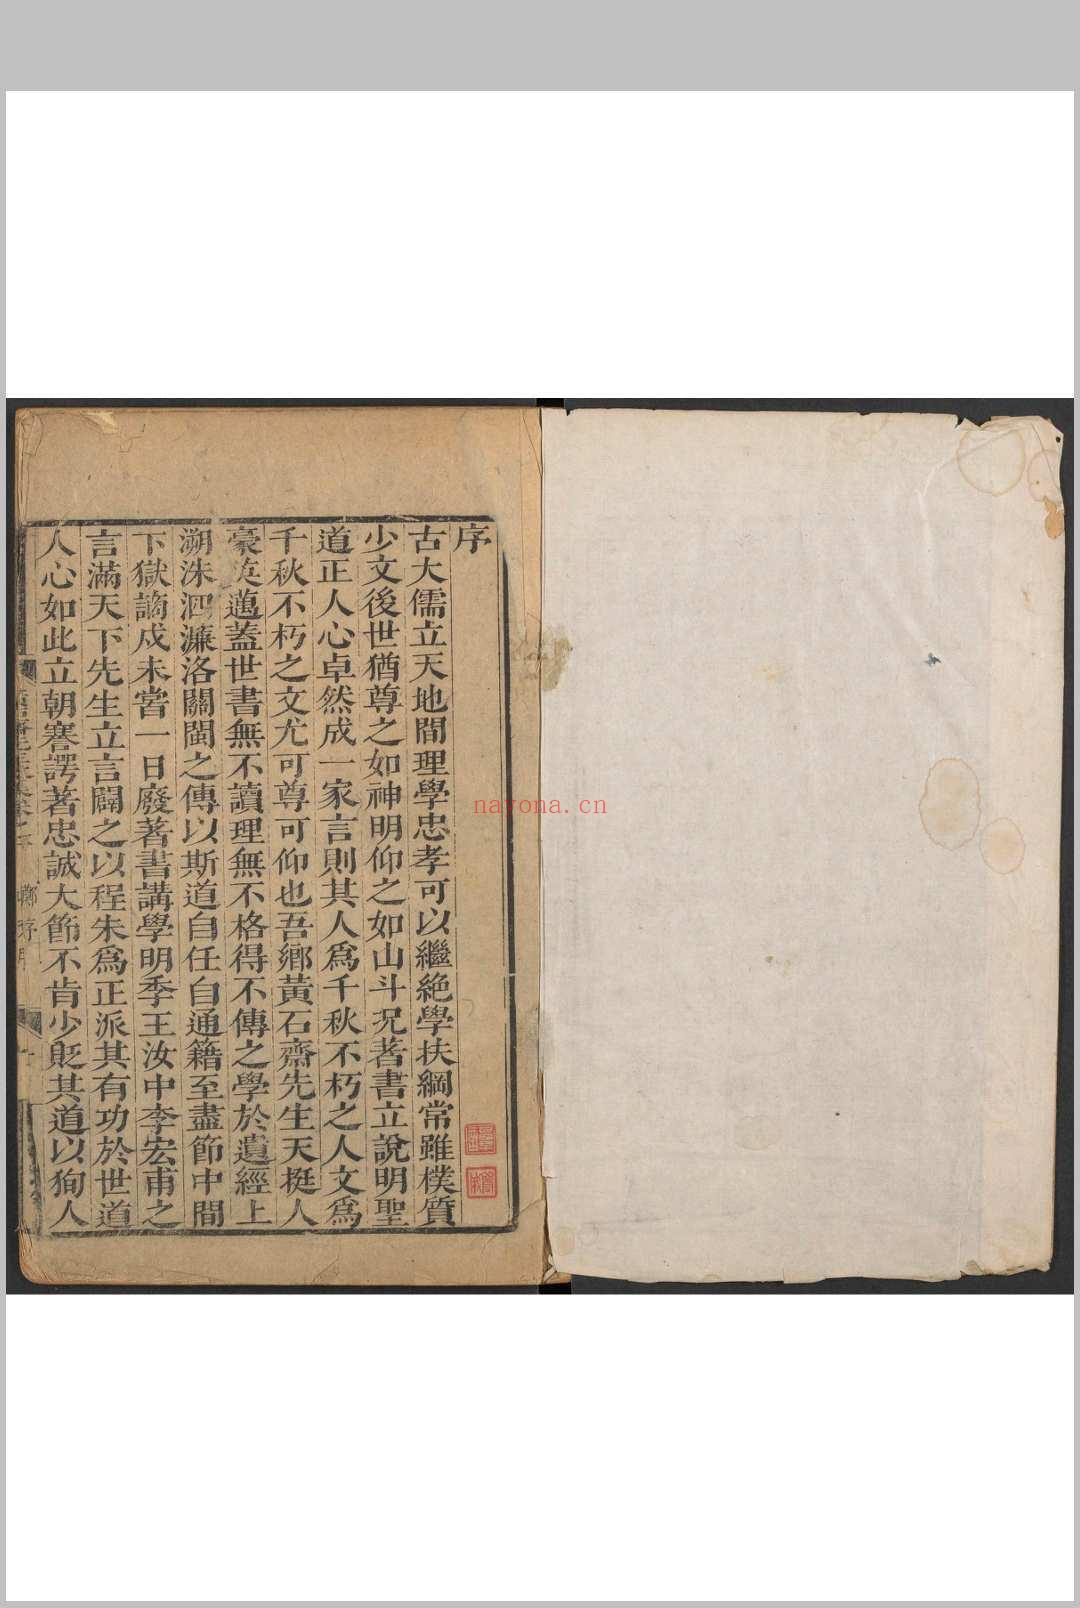 序
古大儒立天地間理學忠孝可以繼絶學扶綱常雖樸質
少文後世猶尊之如神明仰之如山斗況著書立說明聖
道正人心卓然成一家言則其人爲千秋不朽之人文爲
千秋不朽之文尤可尊可仰也吾鄉黃石齋先生天挺人
豪英邁蓋世書無不讀理無不格得不傳之學於遺經上
溯洙泗濂洛關閩之傳以斯道自任自通籍至盡節中間
下獄謫戍未嘗一日廢著書講學明季王汝中李宏甫之
言滿天下先生立言闢之以程朱爲正派其有功於世道
人心如此立朝謇諤著忠誠大節不肯少貶其道以狥人
nayona.cn